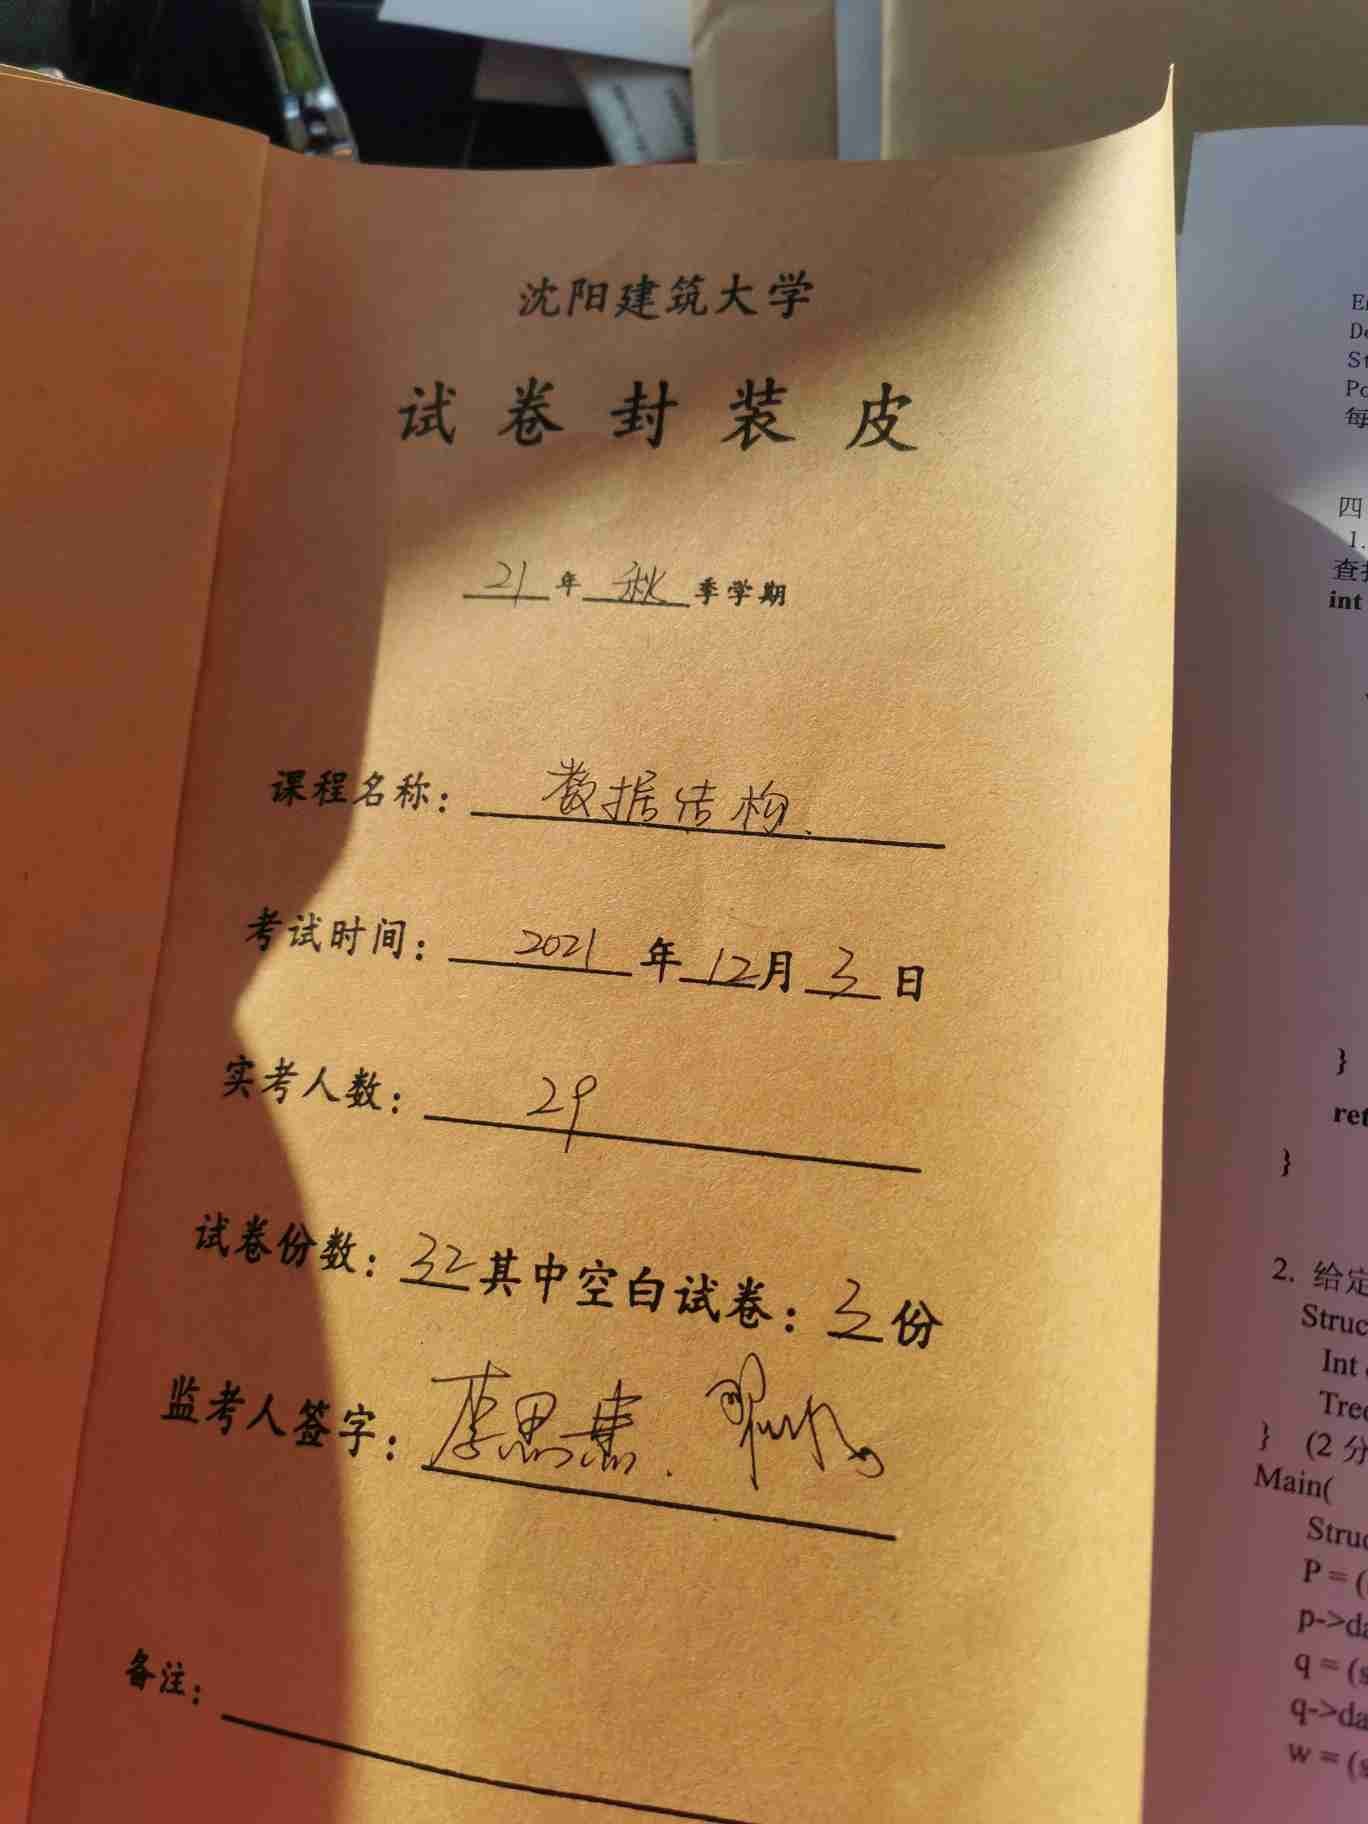 沈阳建筑大学
试卷封装皮
21年秋季学期
课程名称：数据结构.
考试时间：2021年12月3日
实考人数：29
试卷份数：32其中空白试卷：3份
监考人签字：李思
备注：
每
四
1.
查
int
}
ret
}
2. 给定
Struc
Int
Tree
} (2 分
Main(
Struc
P = (
p->da
q = (s
q->da
w = (s